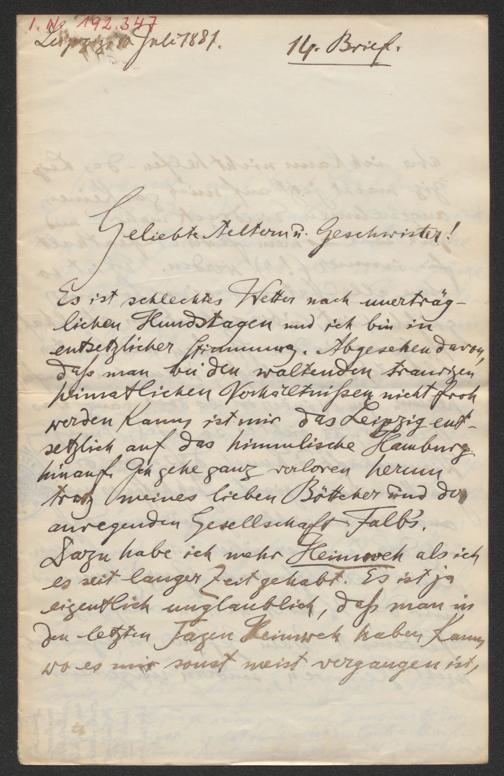 I. N. 192.347
Leipzig Juli 1881. 14. Brief.
Geliebte Aeltern u. Geschwister!
Es ist schlechtes Wetter nach unerträg-
lichen Hundstagen und ich bin in
entsetzlicher Stimmung. Abgesehen davon,
daß man bei den waltenden traurigen
heimatlichen Verhältnißen nicht froh
werden kann, ist mir das Leipzig ent-
setzlich auf das himmlische Hamburg
hinauf. Ich gehe ganz verloren herum
trotz meines lieben Böttcher und der
anregenden Gesellschaft Falbs.
Dazu habe ich mehr Heimweh als ich
es seit langer Zeit gehabt. Es ist ja
eigentlich unglaublich, daß man in
den letzten Tagen Heimweh haben kann,
wo es mir sonst meist vergangen ist,